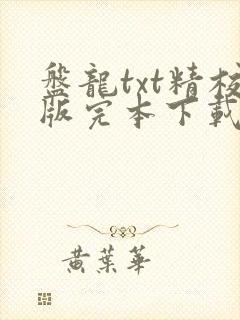 盤龍txt精校
版完本下載
黃葉華